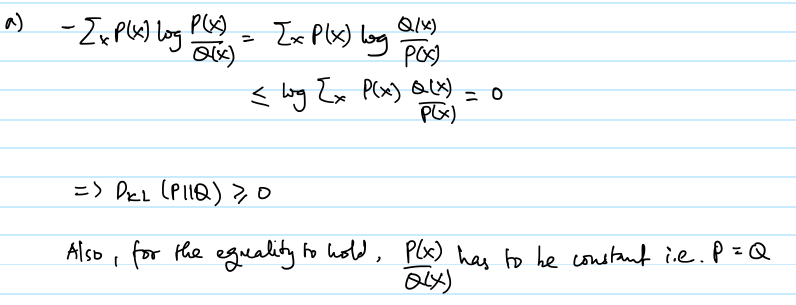 a) - Σx P(x) log P(x)/Q(x) = Σx P(x) log Q(x)/P(x)
≤ log Σx P(x) Q(x)/P(x) = 0
=> DKL (P||Q) ≥ 0
Also, for the equality to hold, P(x)/Q(x) has to be constant i.e. P = Q